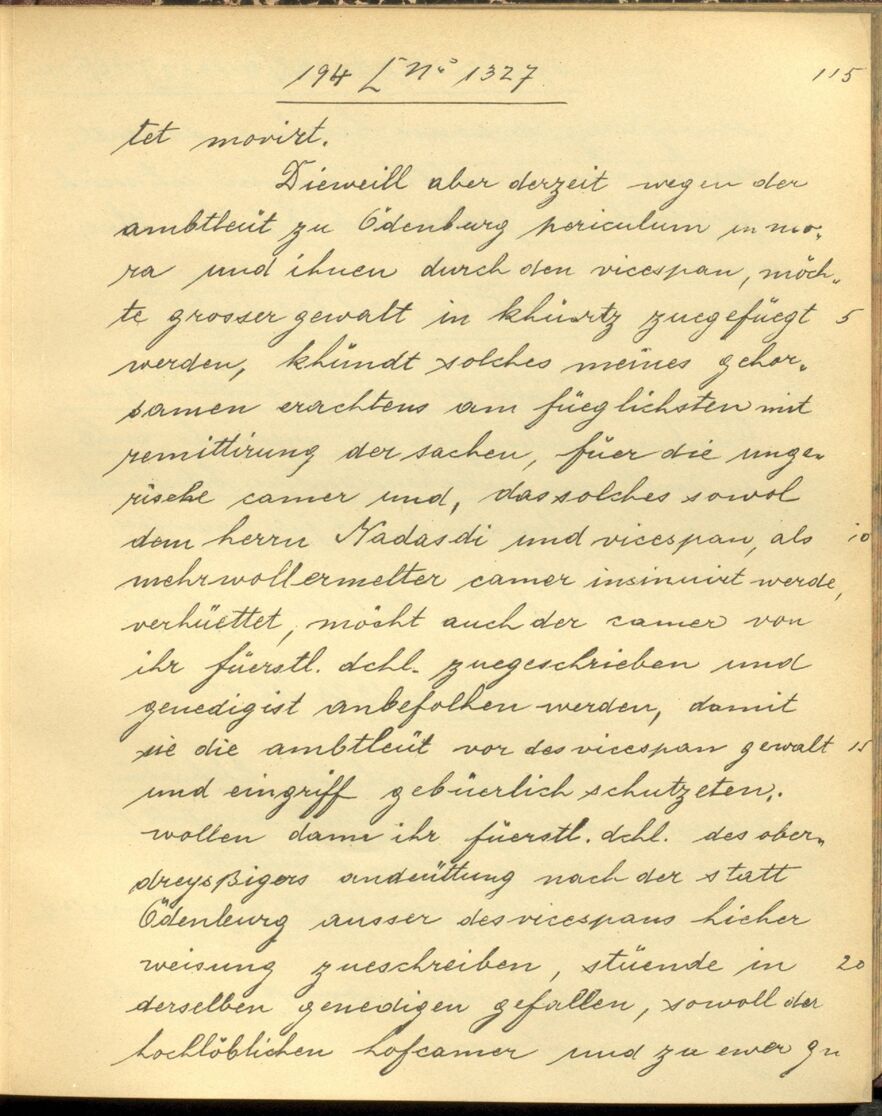 194 [ No 1327 115
tet movirt.
Dieweill aber derzeit wegen der
ambtleüt zu Ödenburg periculum in mo-
ra und ihnen durch den vicespan, möch-
te grosser gewalt in khürtz zuegefüegt 5
werden, khündt solches meines gehor-
samen erachtens am füeglichsten mit
remittirung der sachen, füer die unge-
rische camer und, das solches sowol
dem herrn Nadasdi und vicespan, als 10
mehrwollermelter camer insinuirt werde,
verhüettet, möcht auch der camer von
ihr füerstl. dchl. zuegeschrieben und
genedigist anbefolhen werden, damit
sie die ambtleüt vor des vicespan gewalt 15
und eingriff gebüerlich schutzeten.
wollen dann ihr füerstl. dchl. des ober-
dreysßigers andeüttung nach der statt
Ödenburg ausser des vicespans hieher
weisung zueschreiben, stüende in 20
derselben genedigen gefallen, sowoll der
hochlöblichen hofcamer und zu ewer gn